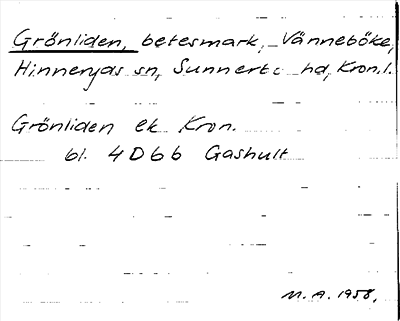 Grönliden, betesmark, Vänneböke,
Hinneryds sn, Sunnerbo hd, Kron. l.
Grönliden ek. Kron.
bl. 4D6b Gashult
M.A. 1958.